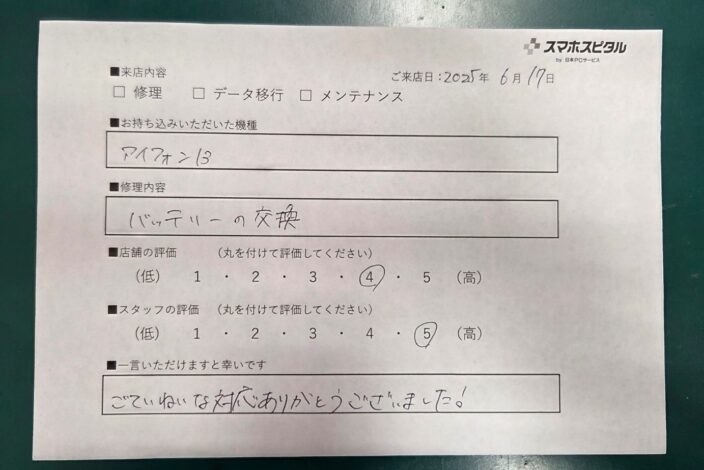 スマホスピタル
by 日本PCサービス
■来店内容
ご来店日：2025年 6月 17日
□ 修理 □ データ移行 □ メンテナンス
■お持ち込みいただいた機種
アイフォン13
■修理内容
バッテリーの交換
■店舗の評価 （丸を付けて評価してください）
（低） 1 ・ 2 ・ 3 ・ 4 ・ 5 （高）
■スタッフの評価 （丸を付けて評価してください）
（低） 1 ・ 2 ・ 3 ・ 4 ・ 5 （高）
■一言いただけますと幸いです
ごていねいな対応ありがとうございました!